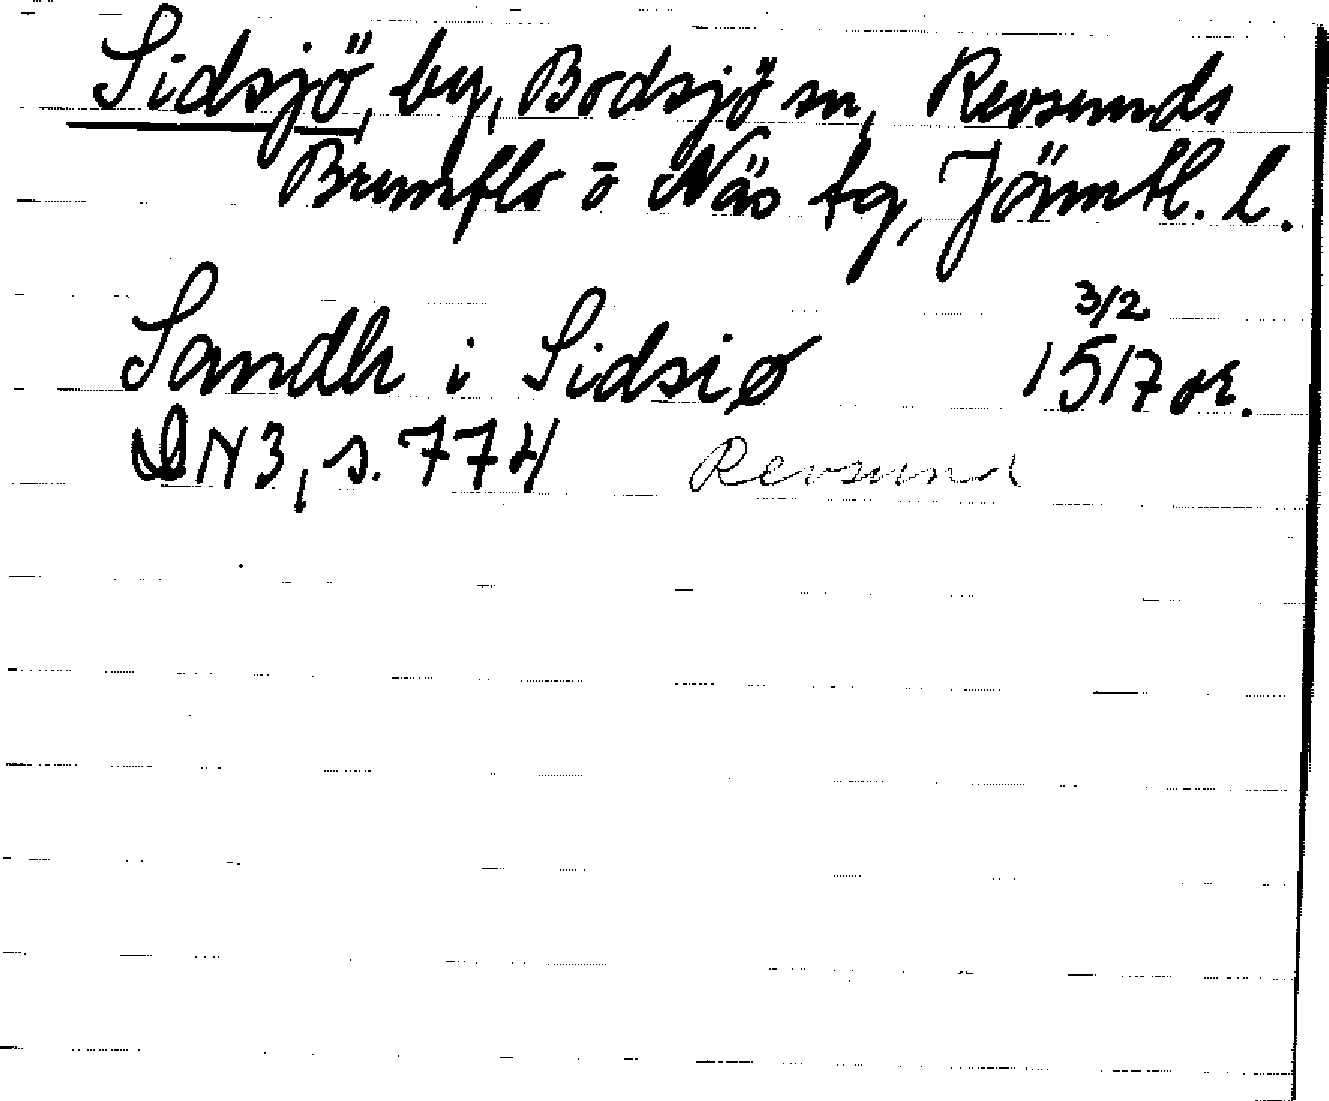 Sidsjö, by, Bodsjö sn, Revsunds
Brunflo o Näs tg, Jämtl. l.
3/2
Sandh i Sidsiø 1517 or.
DN 3, s. 774 Revsund